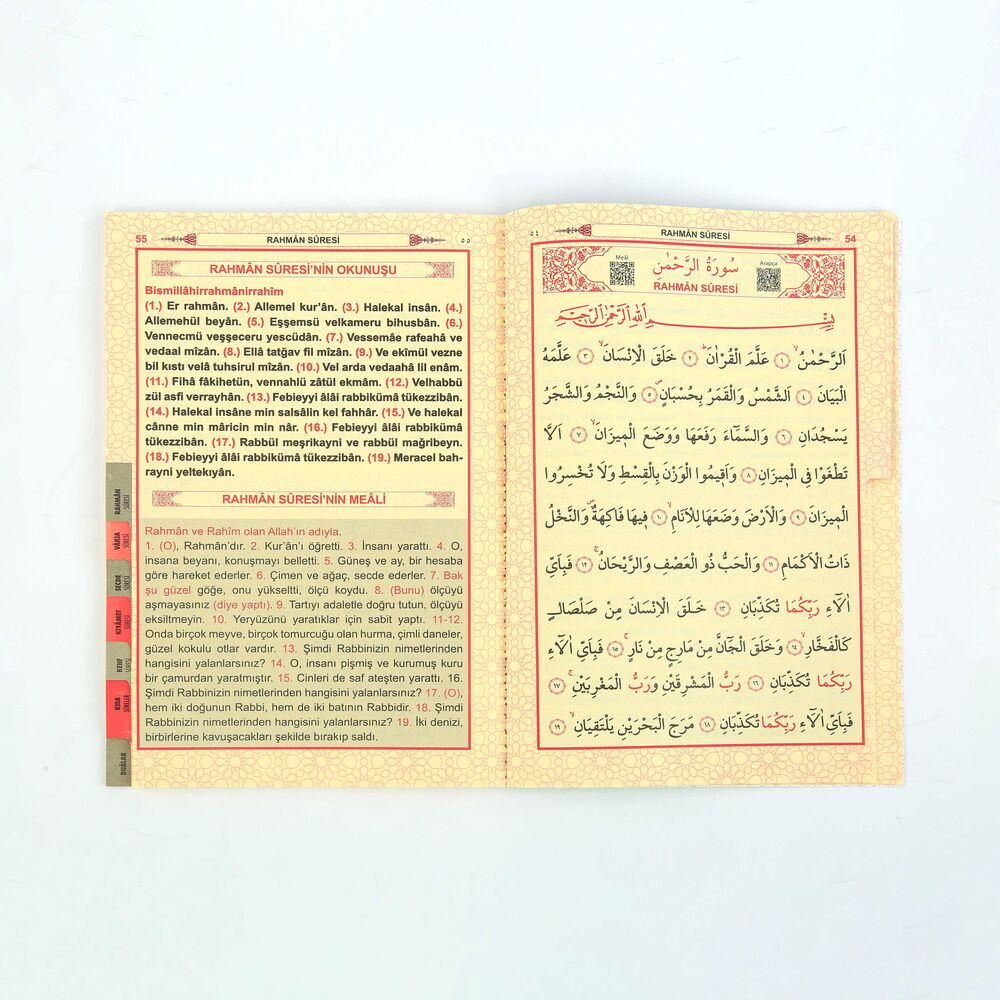 RAHMÂN SÛRESİ
54
٥٤
Meâl
سُورَةُ الرَّحْمٰنِ
Arapça
RAHMÂN SÛRESİ
بِسْمِ اللّٰهِ الرَّحْمٰنِ الرَّحِيمِ
اَلرَّحْمٰنُۙ ﴿١﴾ عَلَّمَ الْقُرْاٰنَۜ ﴿٢﴾ خَلَقَ الْاِنْسَانَۙ ﴿٣﴾ عَلَّمَهُ
الْبَيَانَ ﴿٤﴾ اَلشَّمْسُ وَالْقَمَرُ بِحُسْبَانٍۖ ﴿٥﴾ وَالنَّجْمُ وَالشَّجَرُ
يَسْجُدَانِ ﴿٦﴾ وَالسَّمَٓاءَ رَفَعَهَا وَوَضَعَ الْم۪يزَانَۙ ﴿٧﴾ اَلَّا
تَطْغَوْا فِي الْم۪يزَانِ ﴿٨﴾ وَاَق۪يمُوا الْوَزْنَ بِالْقِسْطِ وَلَا تُخْسِرُوا
الْم۪يزَانَ ﴿٩﴾ وَالْاَرْضَ وَضَعَهَا لِلْاَنَامِۙ ﴿١٠﴾ ف۪يهَا فَاكِهَةٌۖ وَالنَّخْلُ
ذَاتُ الْاَكْمَامِۖ ﴿١١﴾ وَالْحَبُّ ذُو الْعَصْفِ وَالرَّيْحَانُۚ ﴿١٢﴾ فَبِاَيِّ
اٰلَٓاءِ رَبِّكُمَا تُكَذِّبَانِ ﴿١٣﴾ خَلَقَ الْاِنْسَانَ مِنْ صَلْصَالٍ
كَالْفَخَّارِۙ ﴿١٤﴾ وَخَلَقَ الْجَٓانَّ مِنْ مَارِجٍ مِنْ نَارٍۚ ﴿١٥﴾ فَبِاَيِّ اٰلَٓاءِ
رَبِّكُمَا تُكَذِّبَانِ ﴿١٦﴾ رَبُّ الْمَشْرِقَيْنِ وَرَبُّ الْمَغْرِبَيْنِۚ ﴿١٧﴾
فَبِاَيِّ اٰلَٓاءِ رَبِّكُمَا تُكَذِّبَانِ ﴿١٨﴾ مَرَجَ الْبَحْرَيْنِ يَلْتَقِيَانِۙ ﴿١٩﴾
55
RAHMÂN SÛRESİ
٥٥
RAHMÂN SÛRESİ'NİN OKUNUŞU
Bismillâhirrahmânirrahîm
(1.) Er rahmân. (2.) Allemel kur'ân. (3.) Halekal insân. (4.)
Allemehül beyân. (5.) Eşşemsü velkameru bihusbân. (6.)
Vennecmü veşşeceru yescüdân. (7.) Vessemâe rafeahâ ve
vedaal mîzân. (8.) Ellâ tatğav fil mîzân. (9.) Ve ekîmül vezne
bil kıstı velâ tuhsirul mîzân. (10.) Vel arda vedaahâ lil enâm.
(11.) Fîhâ fâkihetün, vennahlü zâtül ekmâm. (12.) Velhabbü
zül asfi verrayhân. (13.) Febieyyi âlâi rabbikümâ tükezzibân.
(14.) Halekal insâne min salsâlin kel fahhâr. (15.) Ve halekal
cânne min mâricin min nâr. (16.) Febieyyi âlâi rabbikümâ
tükezzibân. (17.) Rabbül meşrikayni ve rabbül mağribeyn.
(18.) Febieyyi âlâi rabbikümâ tükezzibân. (19.) Meracel bah-
rayni yeltekıyân.
RAHMÂN SÛRESİ'NİN MEÂLİ
Rahmân ve Rahîm olan Allah'ın adıyla.
1. (O), Rahmân'dır. 2. Kur'ân'ı öğretti. 3. İnsanı yarattı. 4. O,
insana beyanı, konuşmayı belletti. 5. Güneş ve ay, bir hesaba
göre hareket ederler. 6. Çimen ve ağaç, secde ederler. 7. Bak
şu güzel göğe, onu yükseltti, ölçü koydu. 8. (Bunu) ölçüyü
aşmayasınız (diye yaptı). 9. Tartıyı adaletle doğru tutun, ölçüyü
eksiltmeyin. 10. Yeryüzünü yaratıklar için sabit yaptı. 11-12.
Onda birçok meyve, birçok tomurcuğu olan hurma, çimli daneler,
güzel kokulu otlar vardır. 13. Şimdi Rabbinizin nimetlerinden
hangisini yalanlarsınız? 14. O, insanı pişmiş ve kurumuş kuru
bir çamurdan yaratmıştır. 15. Cinleri de saf ateşten yarattı. 16.
Şimdi Rabbinizin nimetlerinden hangisini yalanlarsınız? 17. (O),
hem iki doğunun Rabbi, hem de iki batının Rabbidir. 18. Şimdi
Rabbinizin nimetlerinden hangisini yalanlarsınız? 19. İki denizi,
birbirlerine kavuşacakları şekilde bırakıp saldı.
RAHMÂN SÛRESİ
VÂKIA SÛRESİ
SECDE SÛRESİ
KIYÂMET SÛRESİ
KEHF SÛRESİ
KISA SÛRELER
DUÂLAR